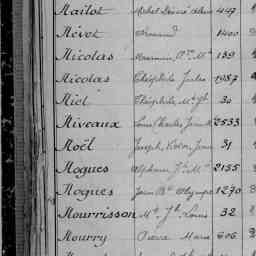 Nailot Michel Désiré Albert 447
Névot Armand 1400
Nicolas Maximin Pre Me 139
Nicolas Théophile Jules 1987
Niel Théophile Me Jh 30
Niveaux Louis Charles Joseph 2533
Noël Joseph Victor Jean 31
Nogues Alphonse Fs Me 2155
Nogues Jean Bte Olympe 1270
Nourrisson Me Jh Louis 32
Nourry Pierre Marie 606